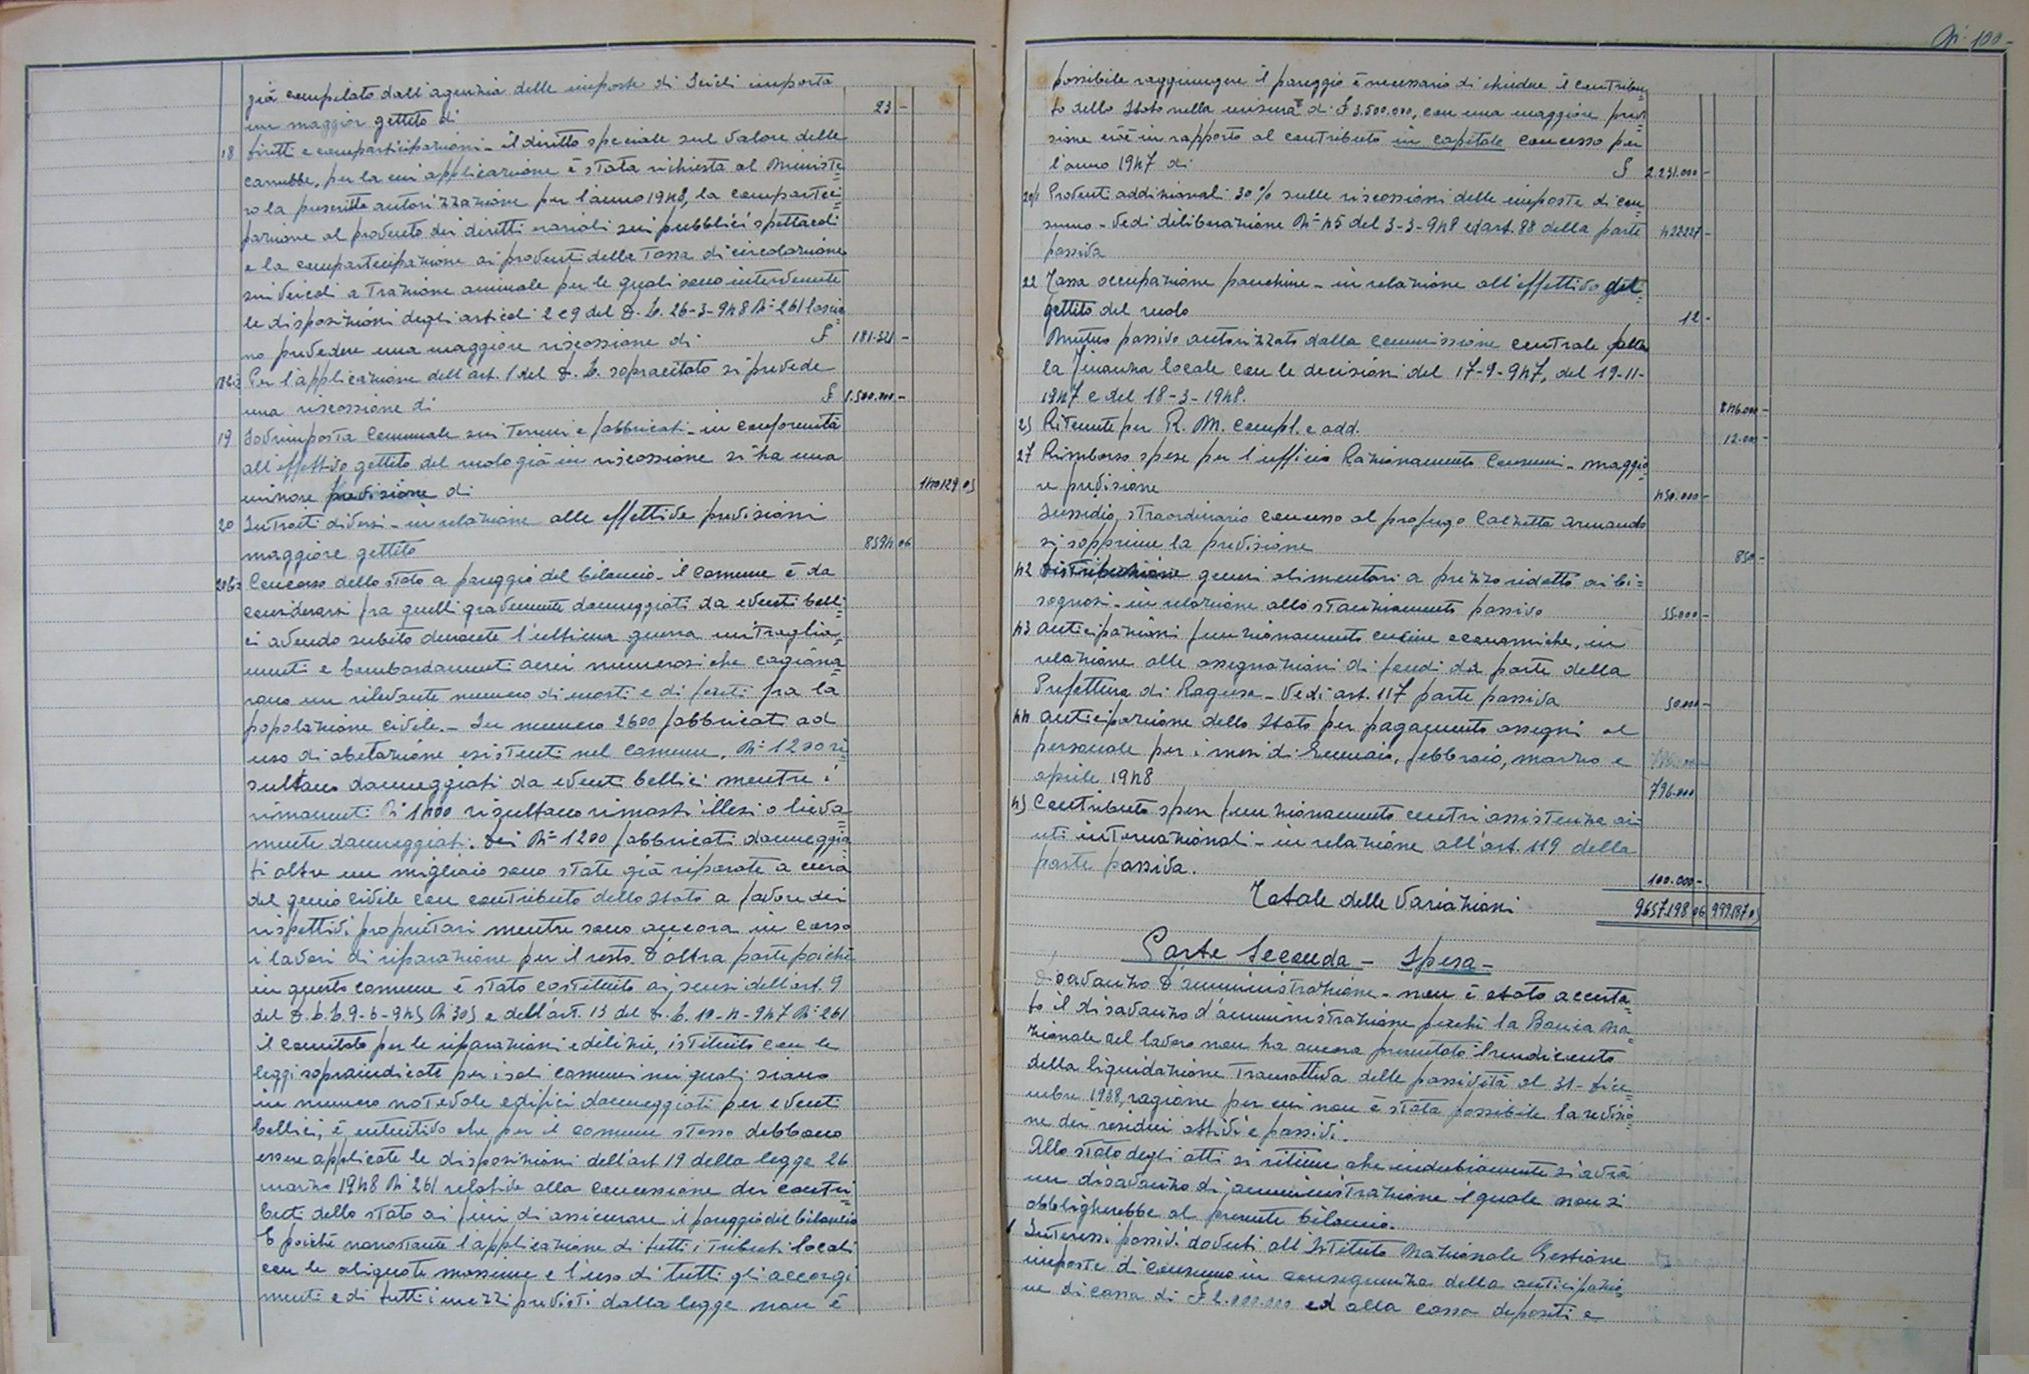 già compilato dall'agenzia delle imposte di Scicli importa
un maggior gettito di 23 -
18 Diritti e compartecipazioni - il diritto speciale sul valore delle
carrubbe, per la cui applicazione è stata richiesta al Ministe=
ro la prescritta autorizzazione per l'anno 1948, la comparteci=
pazione al provento dei diritti erariali sui pubblici spettacoli
e la compartecipazione ai proventi della tassa di circolazione
sui veicoli a trazione animale per le quali sono intervenute
le disposizioni degli articoli 2 e 9 del D. L. 26-3-948 N° 261 lascia=
no prevedere una maggiore riscossione di £ 181.521 -
18bis Per l'applicazione dell'art. 1 del D. L. sopracitato si prevede
una riscossione di £ 1.500.000 -
19 Sovrimposta Comunale sui Terreni e fabbricati - in conformità
all'effettivo gettito del ruolo già in riscossione si ha una
minore previsione di 140129 05
20 Introiti diversi - in relazione alle effettive previsioni
maggiore gettito 8594 06
20bis Concorso dello stato a pareggio del bilancio - il comune è da
considerarsi fra quelli gravemente danneggiati da eventi belli=
ci avendo subito durante l'ultima guerra mitraglia=
menti e bombardamenti aerei numerosi che cagiona=
rono un rilevante numero di morti e di feriti fra la
popolazione civile. - Su numero 2600 fabbricati ad
uso di abitazione esistenti nel comune, N° 1200 ri=
sultano danneggiati da eventi bellici mentre i
rimanenti N° 1400 risultano rimasti illesi o lieve=
mente danneggiati. Dei N° 1200 fabbricati danneggia=
ti oltre un migliaio sono state già riparate a cura
del genio civile con contributo dello Stato a favore dei
rispettivi proprietari mentre sono ancora in corso
i lavori di riparazione per il resto. D'altra parte poichè
in questo comune è stato costituito ai sensi dell'art. 9
del D. L. L. 9-6-945 N° 305 e dell'art. 13 del D. L. 10-4-947 N° 261
il comitato per le riparazioni edilizie, istituito con le
leggi sopraindicate per i soli comuni nei quali siano
in numero notevole edifici danneggiati per eventi
bellici, è intuitivo che per il comune stesso debbano
essere applicate le disposizioni dell'art 19 della legge 26
marzo 1948 N° 261 relative alla concessione dei contri=
buti dello stato ai fini di assicurare il pareggio del bilancio
E poichè nonostante l'applicazione di tutti i tributi locali
con le aliquote massime e l'uso di tutti gli accorgi
menti e di tutti i mezzi previsti dalla legge non è
N° 100 -
possibile raggiungere il pareggio è necessario di chiedere il contribu=
to dello Stato nella misura di £ 3.500.000, con una maggiore previ=
sione cioè in rapporto al contributo in capitale concesso per
l'anno 1947 di £ 2.231.000 -
Proventi addizionali 30% sulle riscossioni delle imposte di con=
sumo - Vedi deliberazione N° 45 del 3-3-948 ed art. 88 della parte 422227 -
passiva
22 Tassa occupazione panchine - in relazione all'effettivo get=
gettito del ruolo 12 -
Mutuo passivo autorizzato dalla Commissione centrale per
la finanza locale con le decisioni del 17-9-947, del 19-11-
1947 e del 18-3-1948. 846.000 -
25 Ritenute per R. M. Compl. e add. 12.000 -
27 Rimborso spese per l'ufficio Razionamento Consumi - maggio
re previsione 450.000 -
Sussidio straordinario concesso al profugo Calzetta Armando
si sopprime la previsione 850 -
42 Distribuzione generi alimentari a prezzo ridotto ai bi=
sognosi - in relazione allo stanziamento passivo 55.000 -
43 Anticipazioni funzionamento cucine economiche, in
relazione alle assegnazioni di fondi da parte della
Prefettura di Ragusa - Vedi art. 117 parte passiva 50.000 -
44 Anticipazione dello Stato per pagamento assegni al
personale per i mesi di Gennaio, febbraio, marzo e
aprile 1948 796.000
45 Contributo spese funzionamento centri assistenza ai=
uti internazionali - in relazione all'art. 119 della
parte passiva. 100.000 -
Totale delle Variazioni 9657198 06 999187 05
Parte Seconda - Spesa -
Disavanzo d'amministrazione - non è stato accerta=
to il disavanzo d'amministrazione perchè la Banca Na=
zionale del lavoro non ha ancora presentato il rendiconto
della liquidazione transattiva delle passività al 31 - Dice=
mbre 1938, ragione per cui non è stata possibile la revisio=
ne dei residui attivi e passivi.
Allo stato degli atti si ritiene che indubbiamente si avrà
un disavanzo di amministrazione il quale non si
obbligherebbe al presente bilancio.
1 Interessi passivi dovuti all'Istituto Nazionale Gestione
imposte di consumo in conseguenza della anticipazio=
ne di cassa di £ 2.000.000 ed alla cassa depositi e